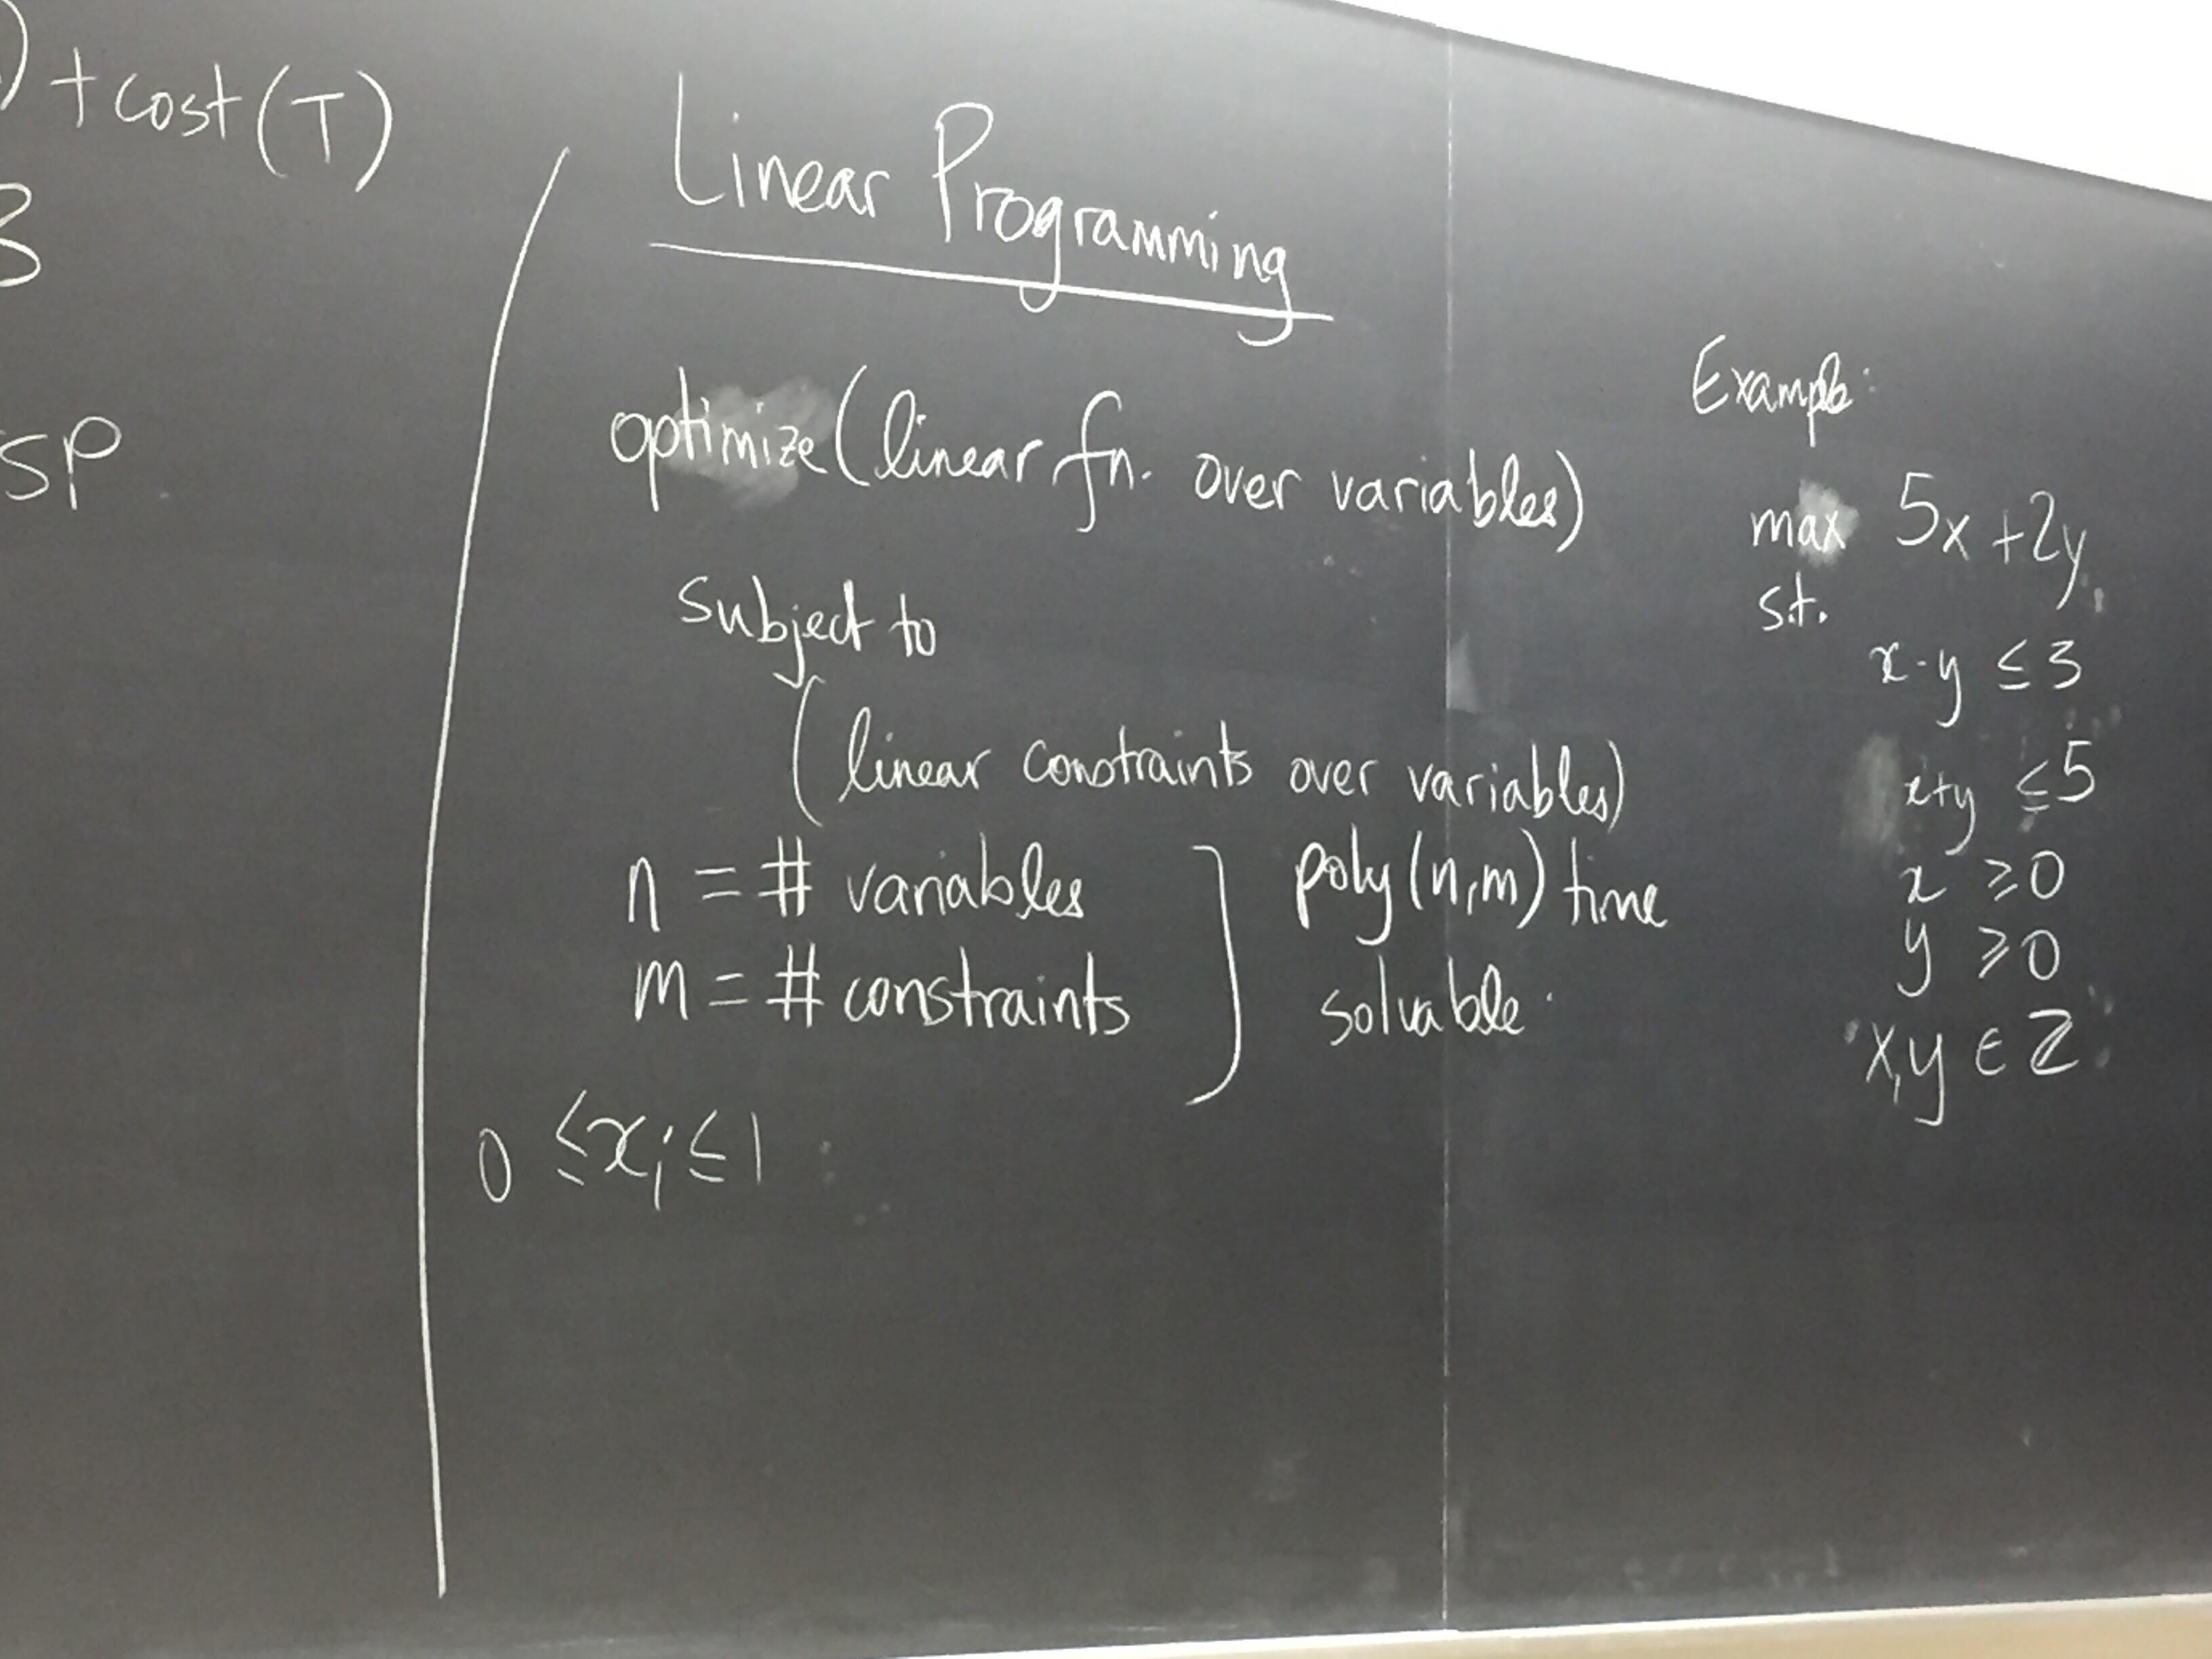 ) + cost(T)
3
SP
Linear Programming
optimize (linear fn. over variables)
subject to
(linear constraints over variables)
n = # variables
m = # constraints
poly(n,m) time
solvable.
0 ≤ xi ≤ 1
Example:
max 5x + 2y
s.t.
x - y ≤ 3
x + y ≤ 5
x ≥ 0
y ≥ 0
x, y ∈ Z